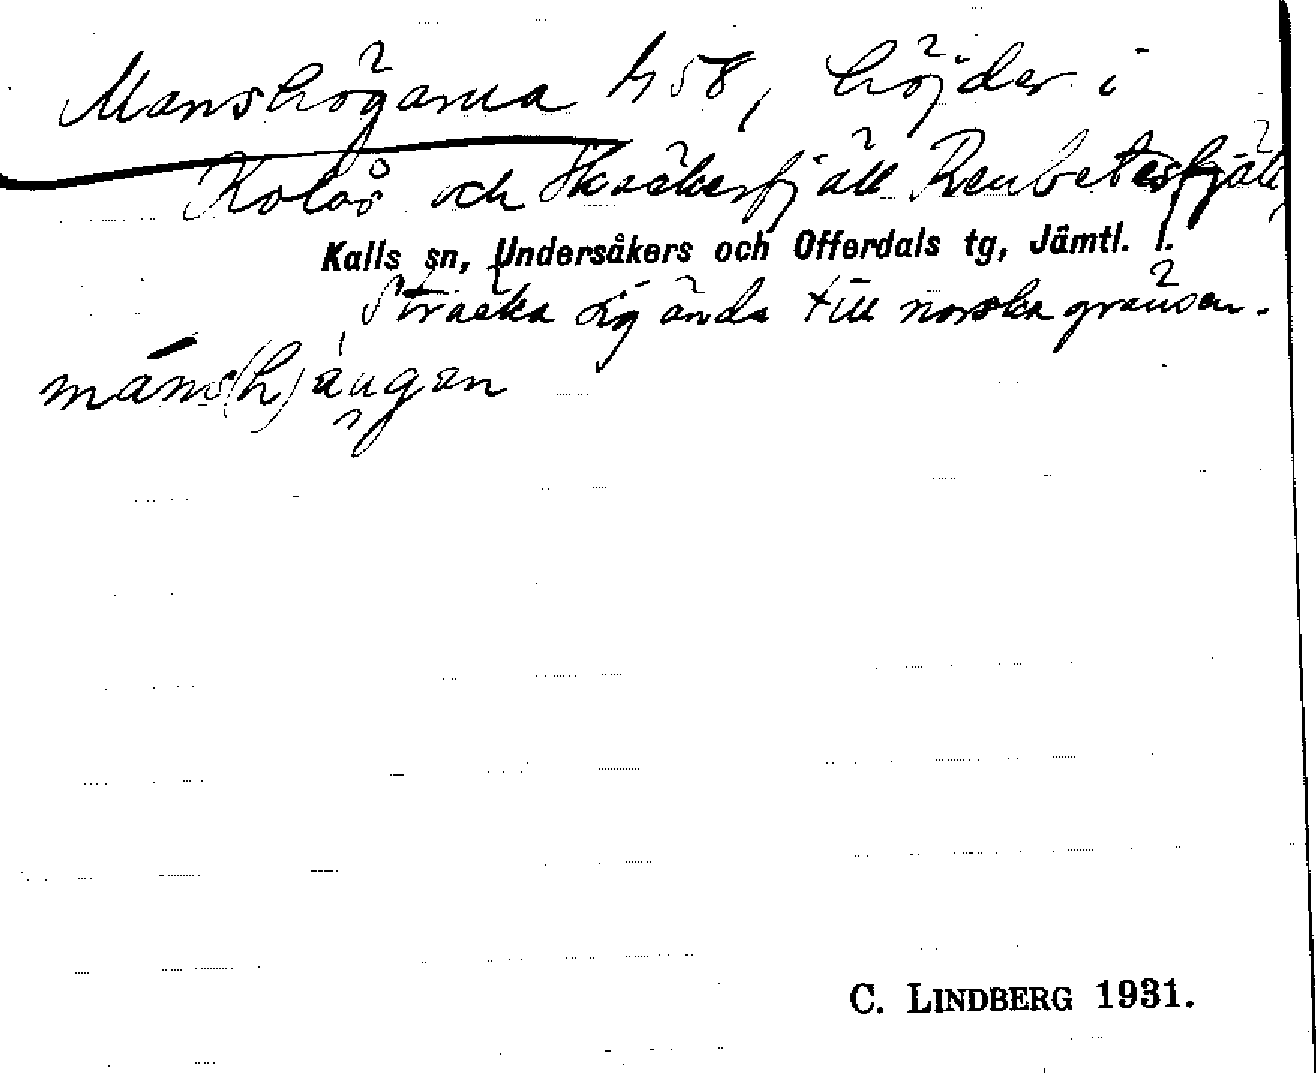 Manshögarna h 58, höjder i
Kolås och Skäckerfjäll Renbetesfjäll,
Kalls sn, Undersåkers och Offerdals tg, Jämtl. l.
Sträcka sig ända till norska gränsen.
måns(h)àugan
C. LINDBERG 1931.